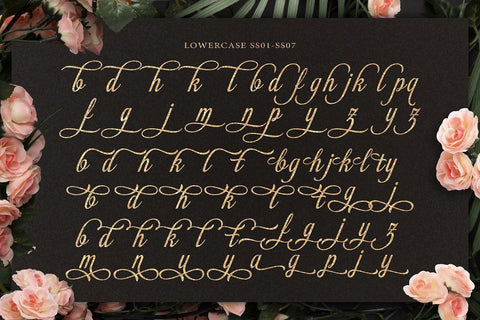 LOWERCASE SS01-SS07
b d h k l b d f g h j k l p q
f g j m n p y z y z
b d h k l t b g h j k l t y
b d h k l t t g j
b d h k l t f g j y z
m n u y a g p j y